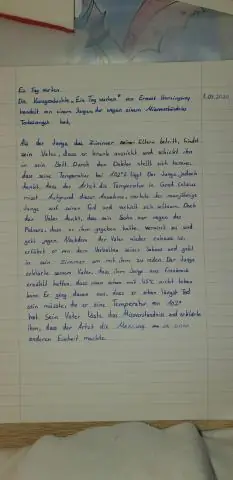 Ein Tag warten.
Die Kurzgeschichte „Ein Tag warten“ von Ernest Hemingway
handelt von einem Jungen, der wegen einem Missverständnis
Todesangst hat.
Als der Junge das Zimmer seiner Eltern betritt, findet
sein Vater, dass er krank aussieht und schickt ihn
in sein Bett. Durch den Doktor stellt sich heraus,
dass seine Temperatur bei 102° liegt. Der Junge jedoch
denkt, dass der Artzt die Temperatur in Grad Celsius
misst. Aufgrund dieser Annahme, wartete der neunjährige
Junge auf seinen Tod und verhielt sich seltsam. Doch
der Vater denkt, dass sein Sohn nur wegen des
Pulvers, dass er ihm gegeben hatte. Verwirrt so und
geht jagen. Nachdem der Vater wieder zuhause ist,
erfährt er von dem Verhalten seines Sohnes und geht
in sein Zimmer um mit ihm zu reden. Der Junge
erklärte seinem Vater, dass ihm Jungs aus Frankreich
erzählt hatten, dass man schon mit 45°C nicht leben
kann. Er ging davon aus, dass er schon längst Tod
sein müsste, da er eine Temperatur von 102°
hat. Sein Vater löste das Missverständnis und erklärte
ihm, dass der Artzt die Messung in einer
anderen Einheit machte.